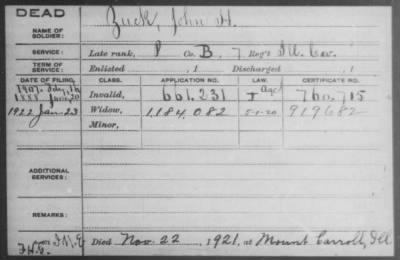 DEAD
NAME OF SOLDIER: Zuck, John H.
SERVICE: Late rank, P Co. B, 7 Reg't Ill. Cav.
TERM OF SERVICE: Enlisted , 1 Discharged , 1
DATE OF FILING. CLASS. APPLICATION NO. LAW. CERTIFICATE NO.
1907. Invalid, 661.231 Age 760.715
1922 Jan-23 Widow, 1,184,082 5-1-20 919682
Minor,
ADDITIONAL SERVICES:
REMARKS:
Died Nov. 22, 1921, at Mount Carroll, Ill.